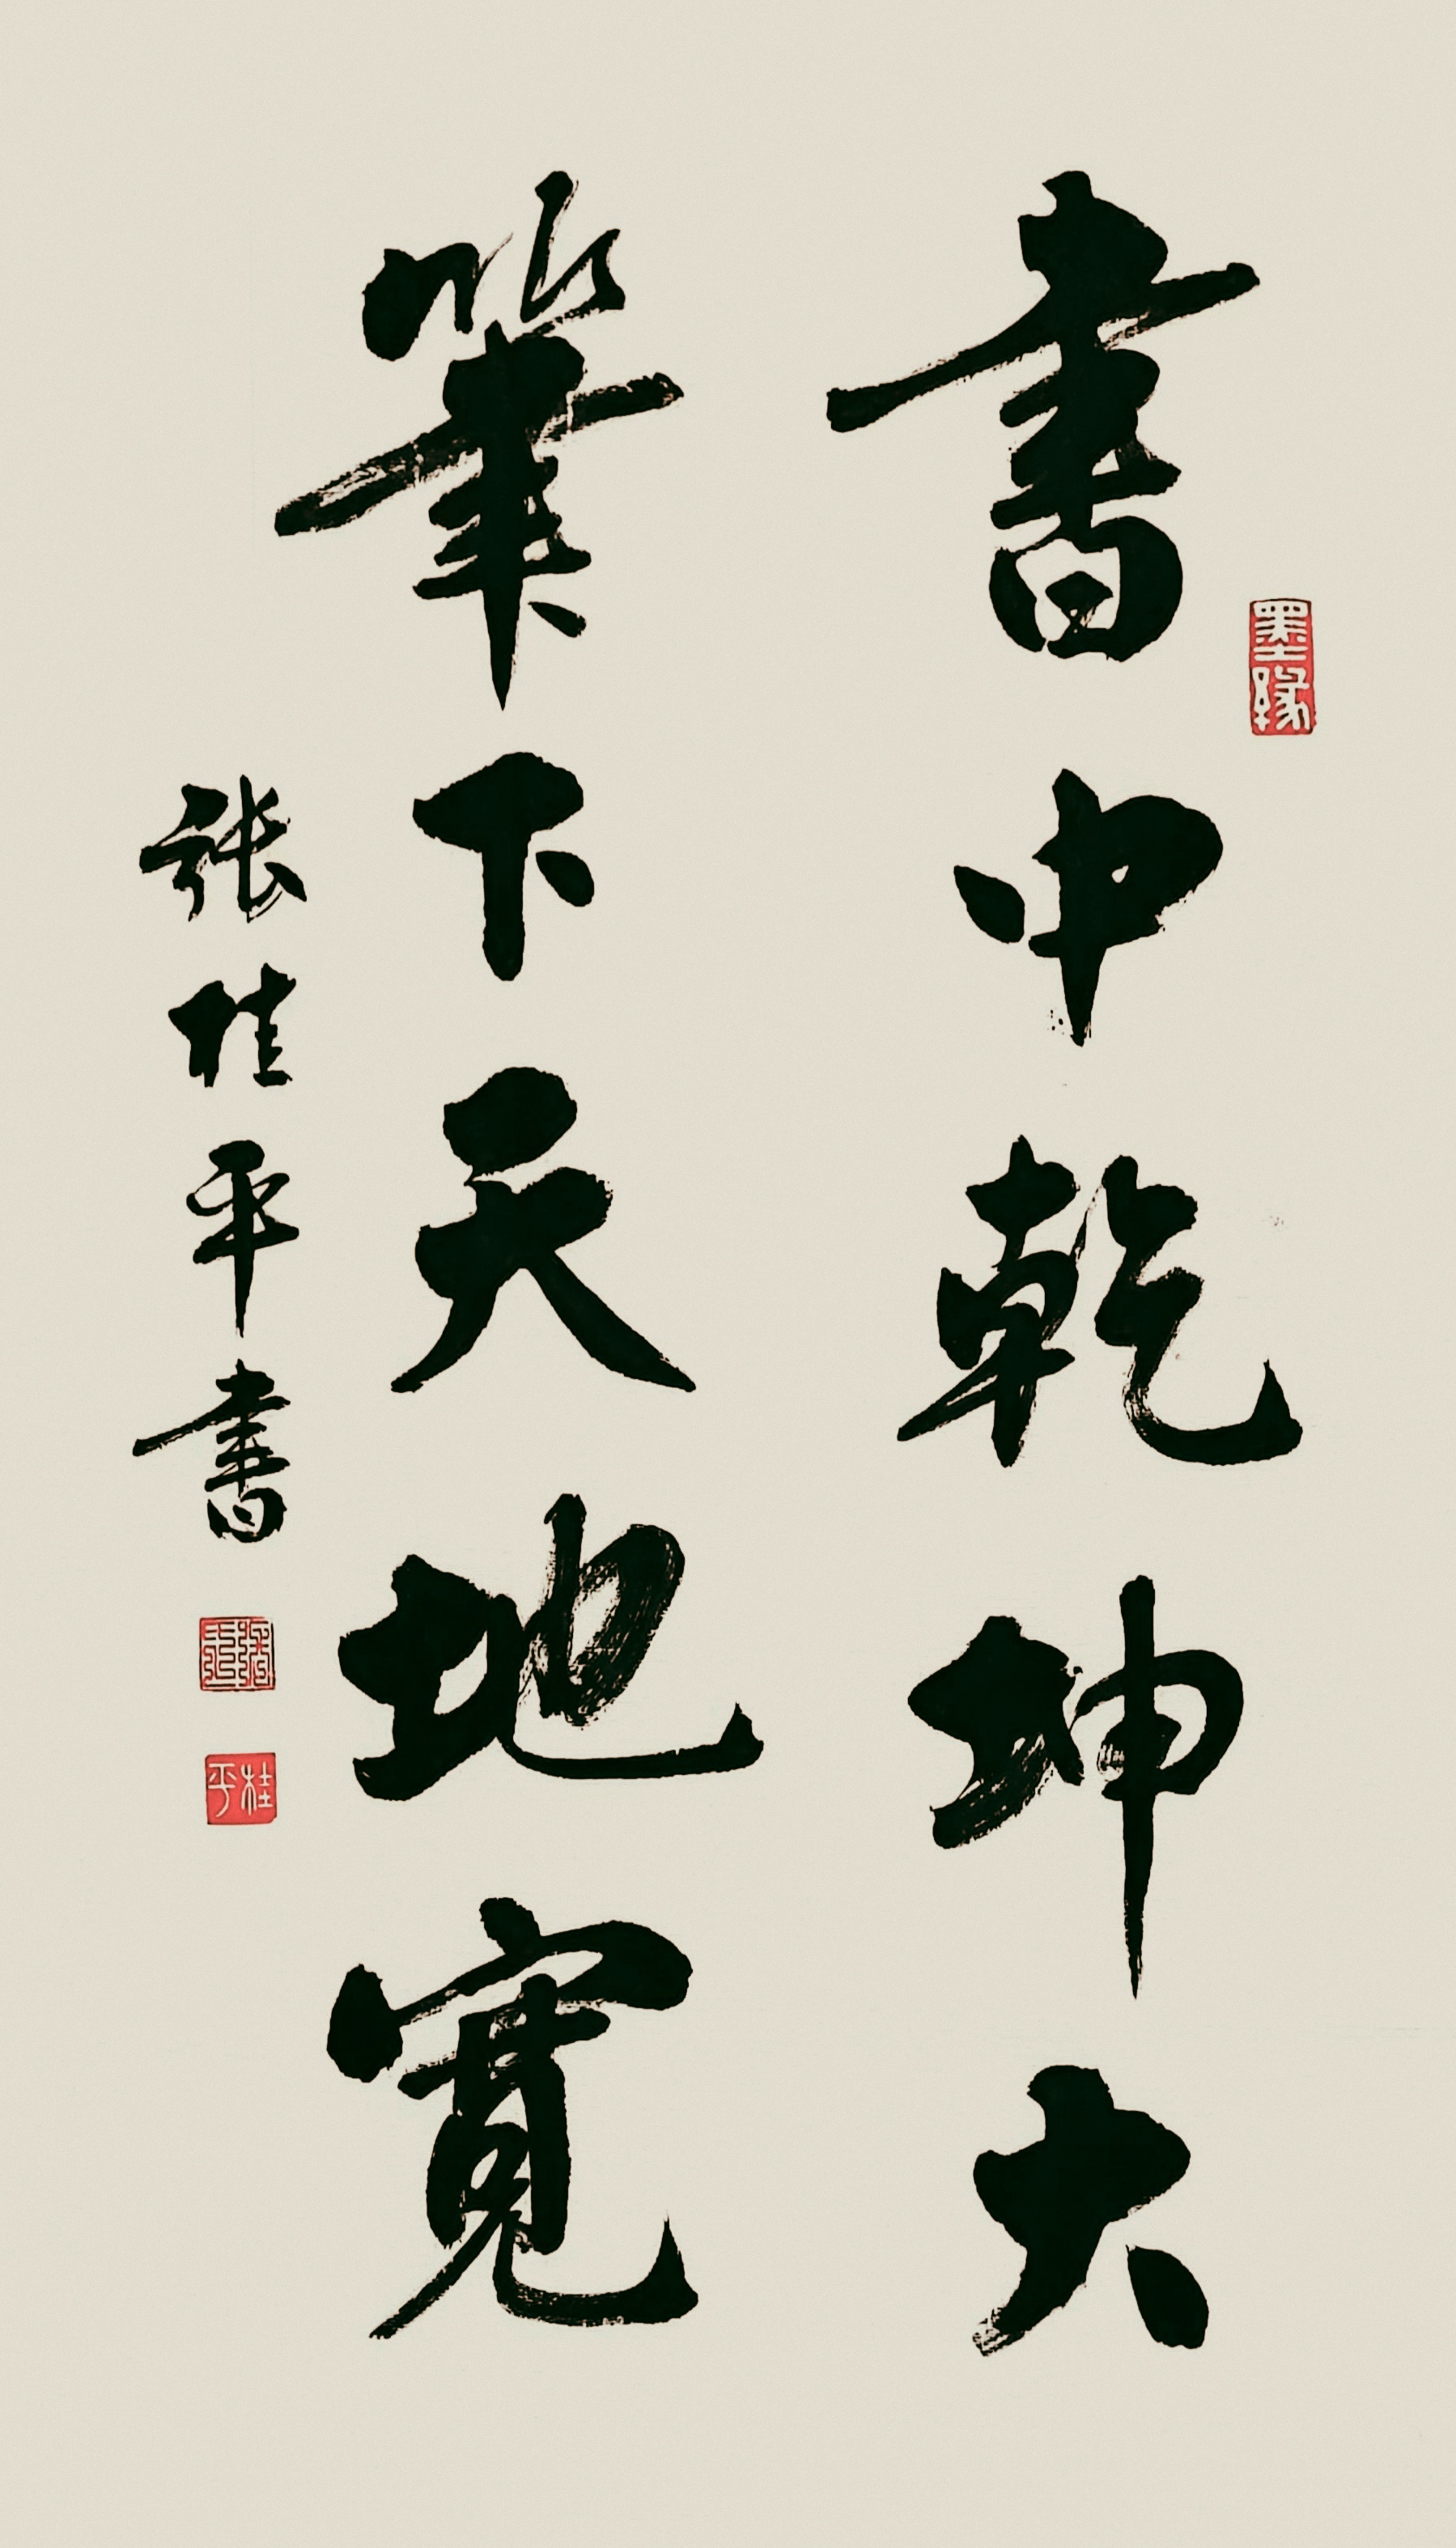 書中乾坤大
墨緣
筆下天地寬
张桂平書
桂平